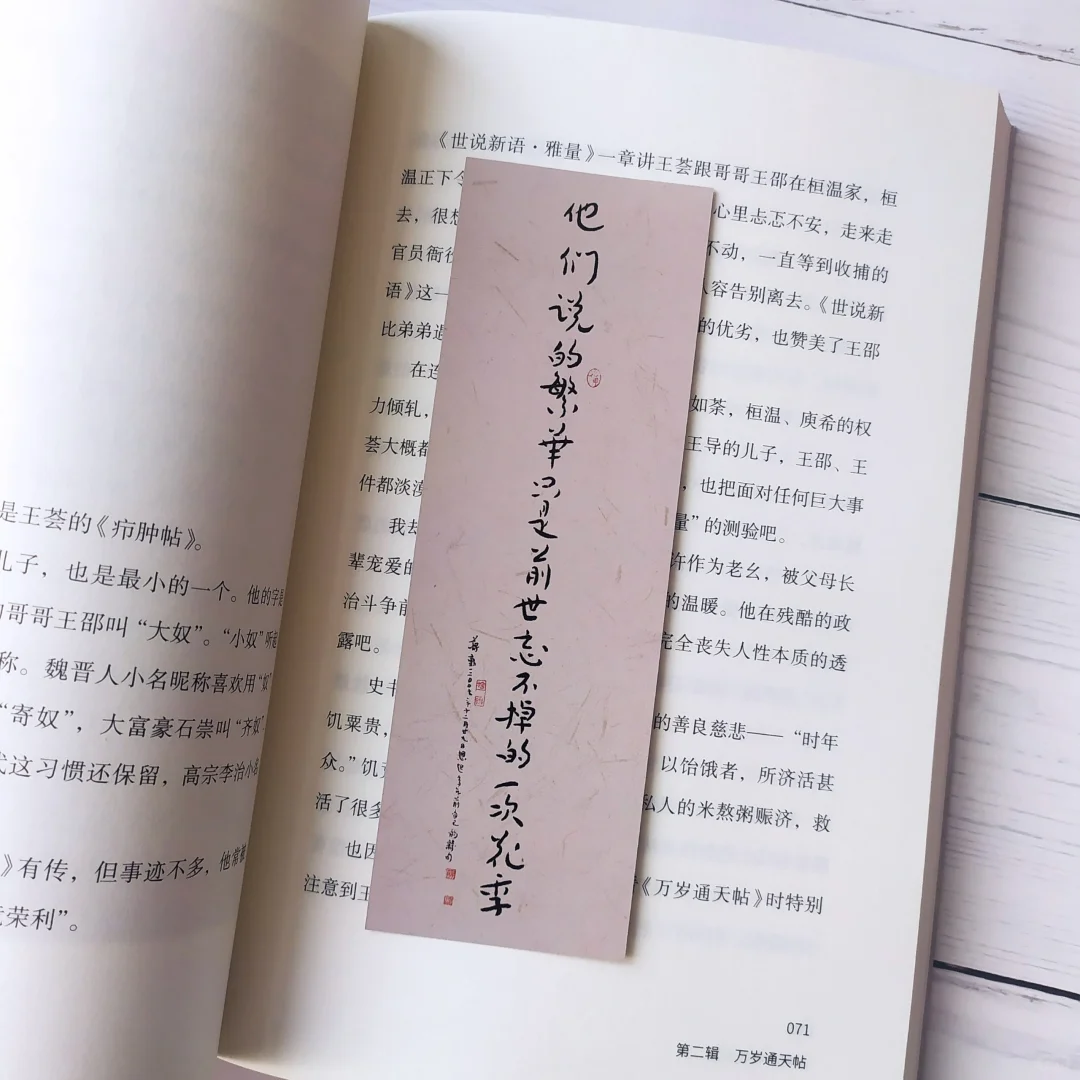 是王荟的《疖肿帖》。
儿子，也是最小的一个。他的字是
的哥哥王邵叫“大奴”。“小奴”听起
称。魏晋人小名昵称喜欢用“奴
“寄奴”，大富豪石崇叫“齐奴
代这习惯还保留，高宗李治小名
》有传，但事迹不多，他常被
荣利”。
《世说新语·雅量》一章讲王荟跟哥哥王邵在桓温家，桓
温正下令 心里忐忑不安，走来走
去，很想 不动，一直等到收捕的
官员衙役 容告别离去。《世说新
语》这一 的优劣，也赞美了王邵
比弟弟
在连
力倾轧， 如荼，桓温、庾希的权
荟大概都 王导的儿子，王邵、王
件都淡漠 ，也把面对任何巨大事
我 量”的测验吧。
辈宠爱的 许作为老幺，被父母长
治斗争前 的温暖。他在残酷的政
露吧。 完全丧失人性本质的透
史书
饥粟贵， 的善良慈悲——“时年
众。”饥荒 以饴饿者，所济活甚
活了很多 私人的米熬粥赈济，救
也因
注意到王 《万岁通天帖》时特别
071
第二辑 万岁通天帖
他们说的繁华只是前世忘不掉的一次花季